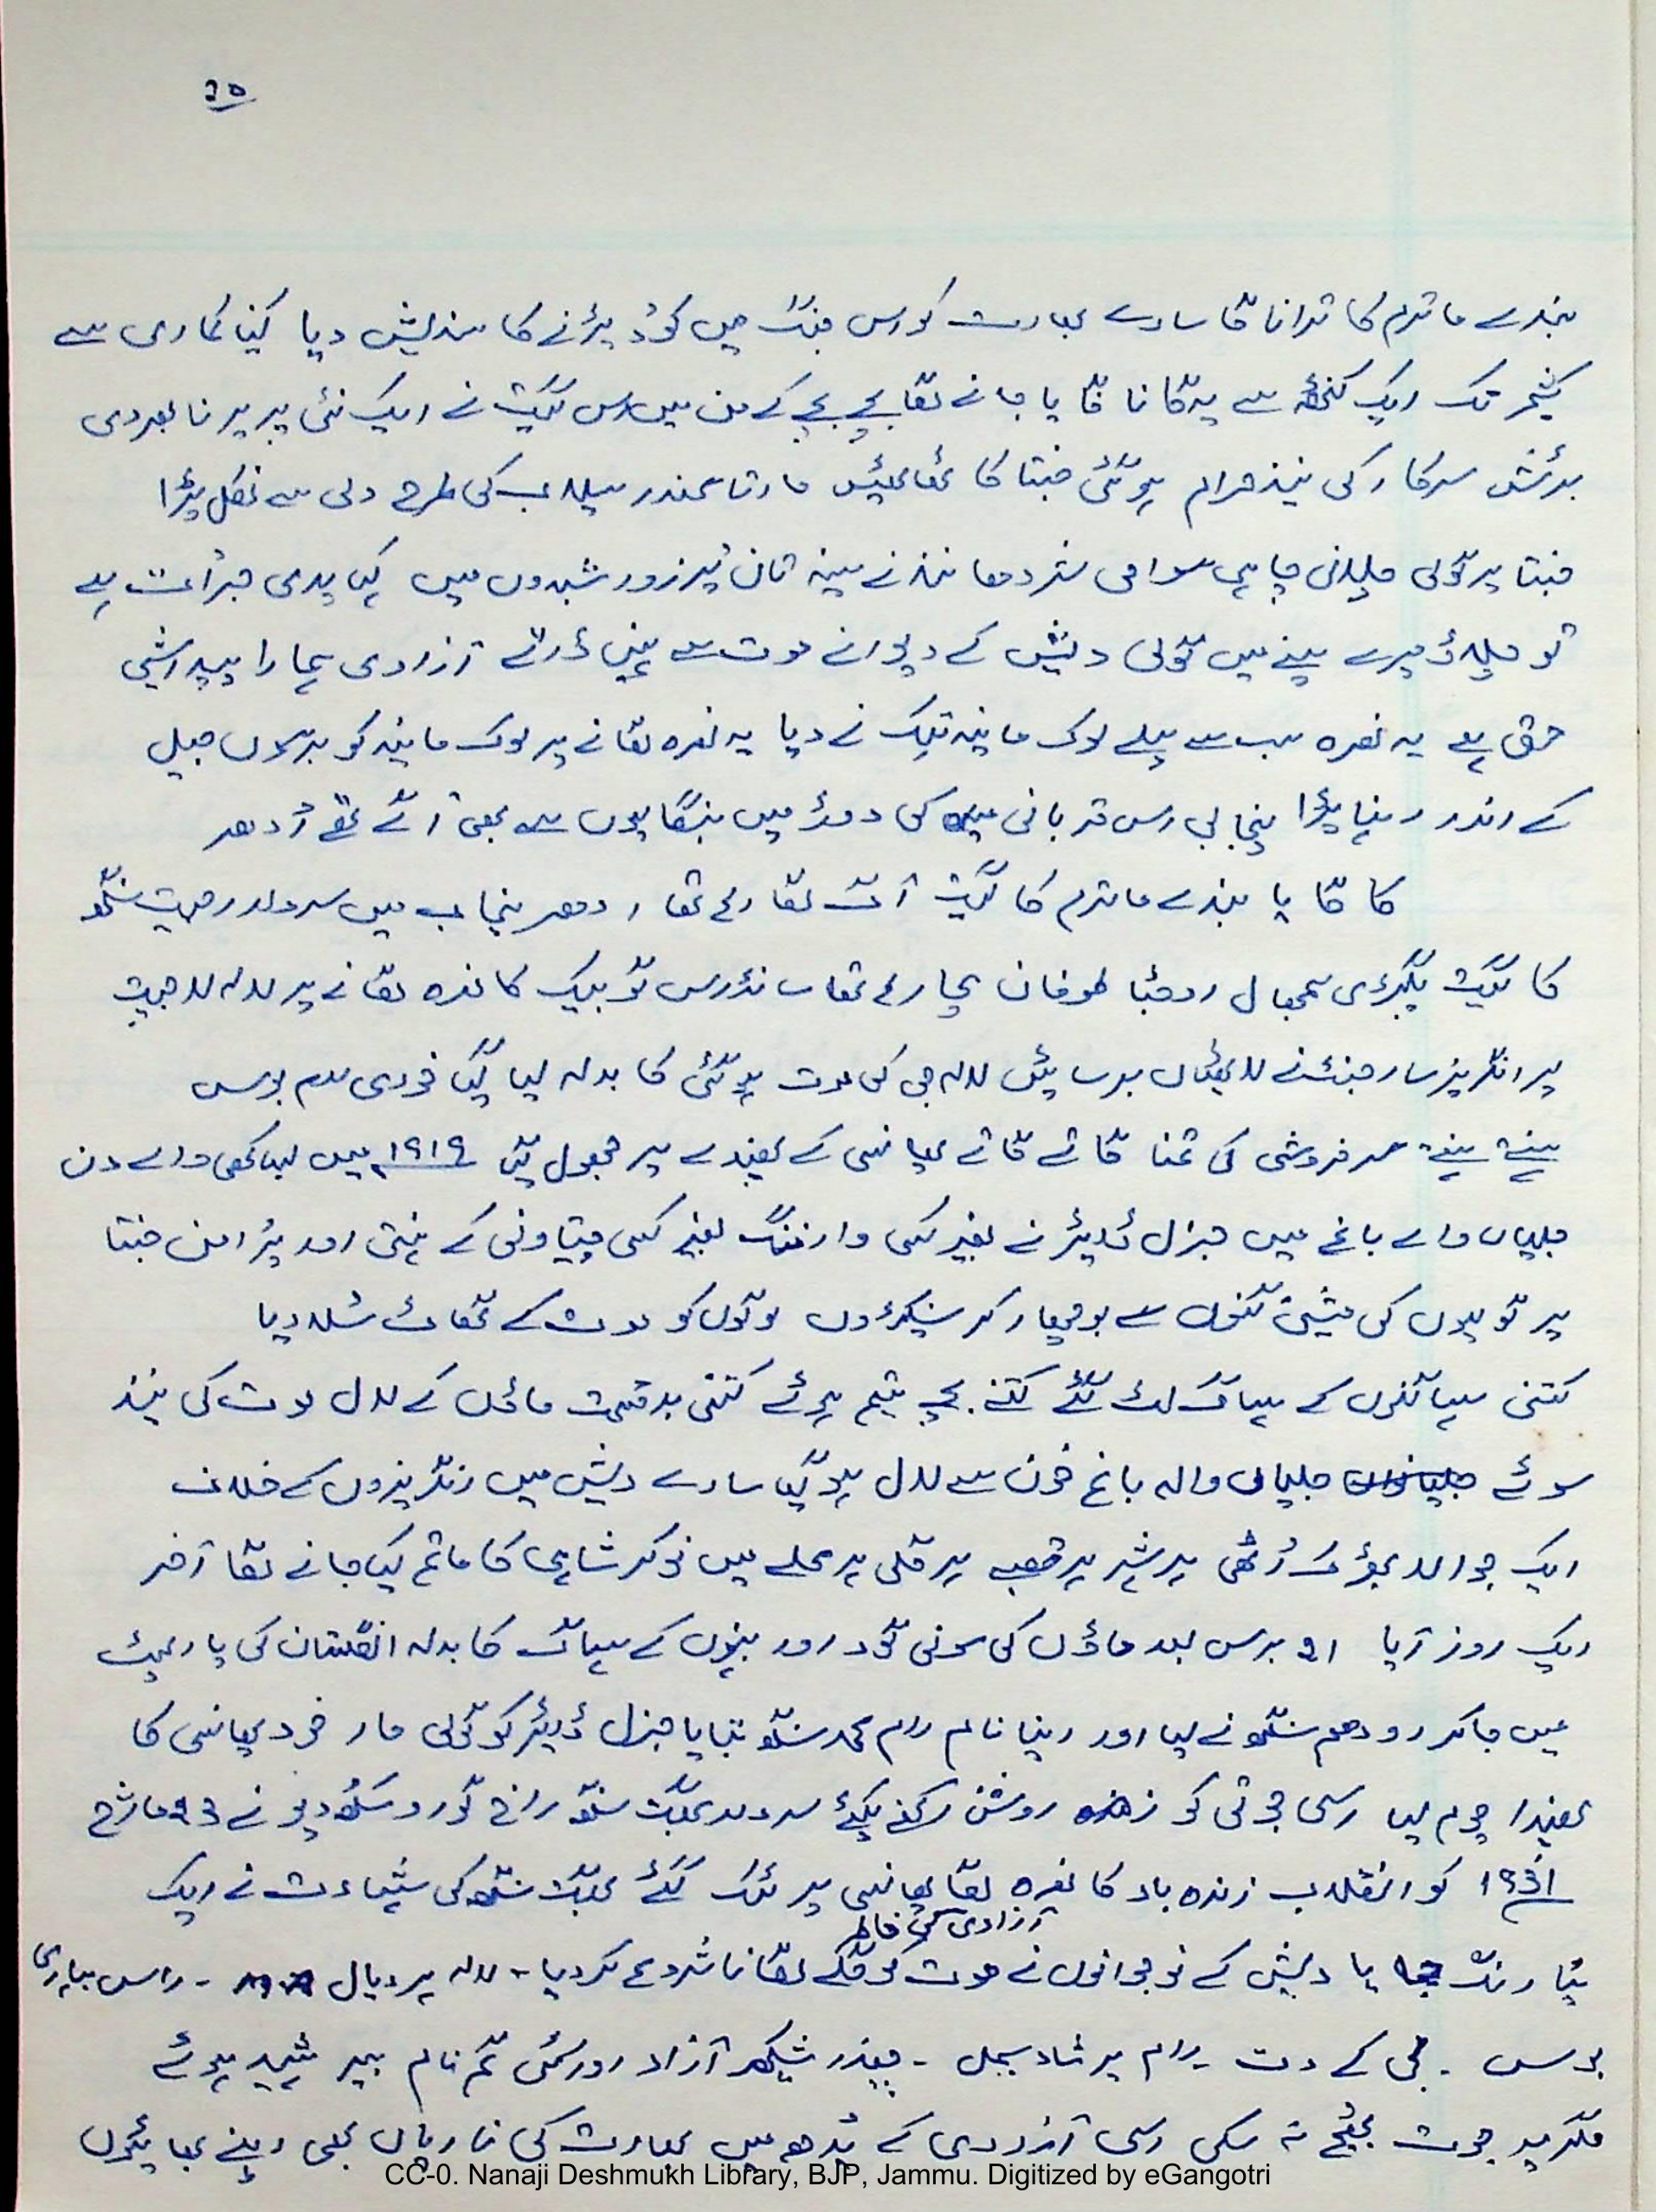 ۲۵
بندے ماترم کا ترانا گا سارے بھارت کو اس جنگ میں کود پڑنے کا سندیش دیا کنیا کماری سے
کشمیر تک ایک کنٹھ سے یہ گانا گایا جانے لگا بچے بچے کے من میں اس گیت نے ایک نئی پریرنا بھر دی
برٹش سرکار کی نیند حرام ہو گئی جنتا کا ٹھاٹھیں مارتا سمندر سیلاب کی طرح دلی سے نکل پڑا
جنتا پر گولی چلانی چاہی سوامی شردھا نند نے سینہ تان پُرزور شبدوں میں کہا یدی جرأت ہے
تو چلاؤ میرے سینے میں گولی دیش کے دیوانے موت سے نہیں ڈرتے آزادی ہمارا پیدائشی
حق ہے یہ نعرہ سب سے پہلے لوک مانیہ تلک نے دیا یہ نعرہ لگانے پر لوک مانیہ کو برسوں جیل
کے اندر رہنا پڑا پنجابی اس قربانی کی دوڑ میں بنگالیوں سے بھی آگے تھے اُدھر
کا گایا بندے ماترم کا گیت آگ لگا رہا تھا ادھر پنجاب میں سردار اجیت سنگھ
کا گیت پگڑی سمبھال اوجٹا طوفان مچا رہا تھا سانڈرس گو بیک کا نعرہ لگانے پر لالہ لاجپت
پر انگریز سارجنٹ نے لاٹھیاں برسائیں لالہ جی کی موت ہو گئی کا بدلہ لیا گیا خودی رام بوس
ہنستے ہنستے سرفروشی کی تمنا گاتے گاتے پھانسی کے پھندے پر جھول گیا ۱۹۱۹ میں بیساکھی والے دن
جلیاں والے باغ میں جنرل ڈایئر نے بغیر کسی وارننگ بغیر کسی چیتاونی کے نہتی اور پُرامن جنتا
پر گولیوں کی مشین گنوں سے بوچھاڑ کر سینکڑوں لوگوں کو موت کے گھاٹ سُلا دیا
کتنی سہاگنوں کے سہاگ لٹ گئے کتنے بچے یتیم ہوئے کتنی بدقسمت ماؤں کے لال موت کی نیند
سوئے جلیاں والہ باغ خون سے لال ہو گیا سارے دیش میں انگریزوں کے خلاف
ایک جوالا بھڑک اُٹھی ہر شہر ہر قصبے ہر گلی ہر محلے میں نوکر شاہی کا ماتم کیا جانے لگا آخر
ایک روز آیا ۲۱ برس بعد ماؤں کی سونی گود اور بہنوں کے سہاگ کا بدلہ انگلستان کی پارلیمنٹ
میں جا کر اودھم سنگھ نے لیا اور اپنا نام رام محمد سنگھ بتایا جنرل ڈایئر کو گولی مار خود پھانسی کا
پھندا چوم لیا اسی جوتی کو زندہ روشن رکھنے کیلئے سردار بھگت سنگھ راج گورو سکھدیو نے ۲۳ مارچ
۱۹۳۱ کو انقلاب زندہ باد کا نعرہ لگا پھانسی پر لٹک گئے بھگت سنگھ کی شہادت نے ایک
آزادی کی خاطر
نیا رنگ لایا دیش کے نوجوانوں نے موت کو گلے لگانا شروع کر دیا۔ لالہ ہر دیال۔ راس بہاری
بوس۔ بی کے دت۔ رام پرشاد بسمل۔ چندر شیکھر آزاد اور کئی گم نام ہیر شہید ہوئے
مگر یہ جوت بجھ نہ سکی اسی آزادی کے یُدھ میں بھارت کی ناریاں بھی اپنے بھائیوں
CC-0. Nanaji Deshmukh Library, BJP, Jammu. Digitized by eGangotri